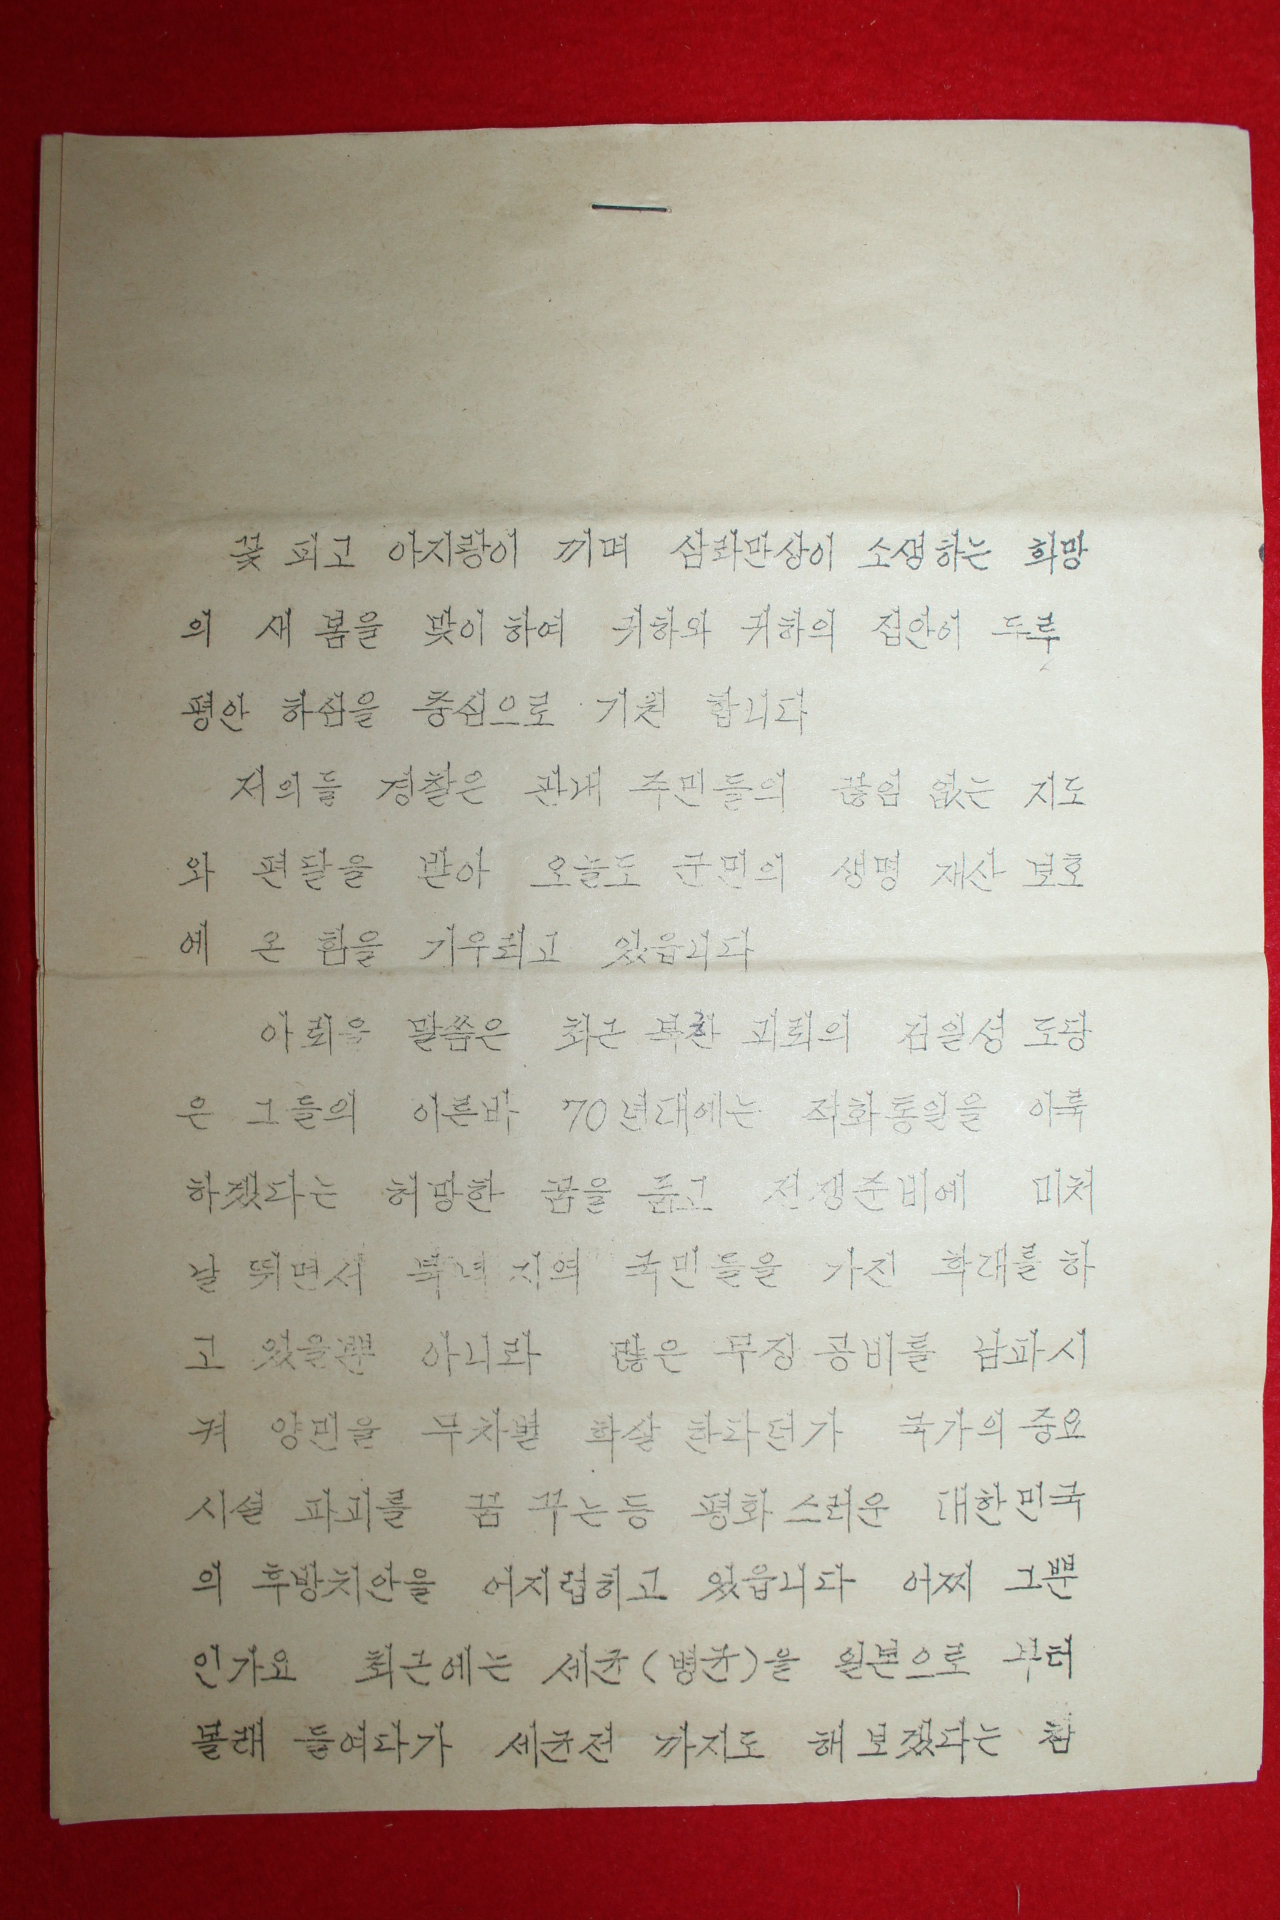 꽃 피고 아지랑이 끼며 삼라만상이 소생하는 희망
의 새 봄을 맞이 하여 귀하와 귀하의 집안이 두루
평안 하심을 충심으로 기원 합니다
저의들 경찰은 관내 주민들의 끊임 없는 지도
와 편달을 받아 오늘도 군민의 생명 재산 보호
에 온 힘을 기우리고 있읍니다
아뢰올 말씀은 최근 북한 괴뢰의 김일성 도당
은 그들의 이른바 70년대에는 적화통일을 이룩
하겠다는 허망한 꿈을 품고 전쟁준비에 미쳐
날 뛰면서 북녘 지역 국민들을 가진 학대를 하
고 있을뿐 아니라 많은 무장 공비를 남파시
켜 양민을 무차별 학살 한다던가 국가의 중요
시설 파괴를 꿈 꾸는등 평화 스러운 대한민국
의 후방치안을 어지럽히고 있읍니다 어찌 그뿐
인가요 최근에는 세균(병균)을 일본으로 부터
몰래 들여다가 세균전 까지도 해 보겠다는 참